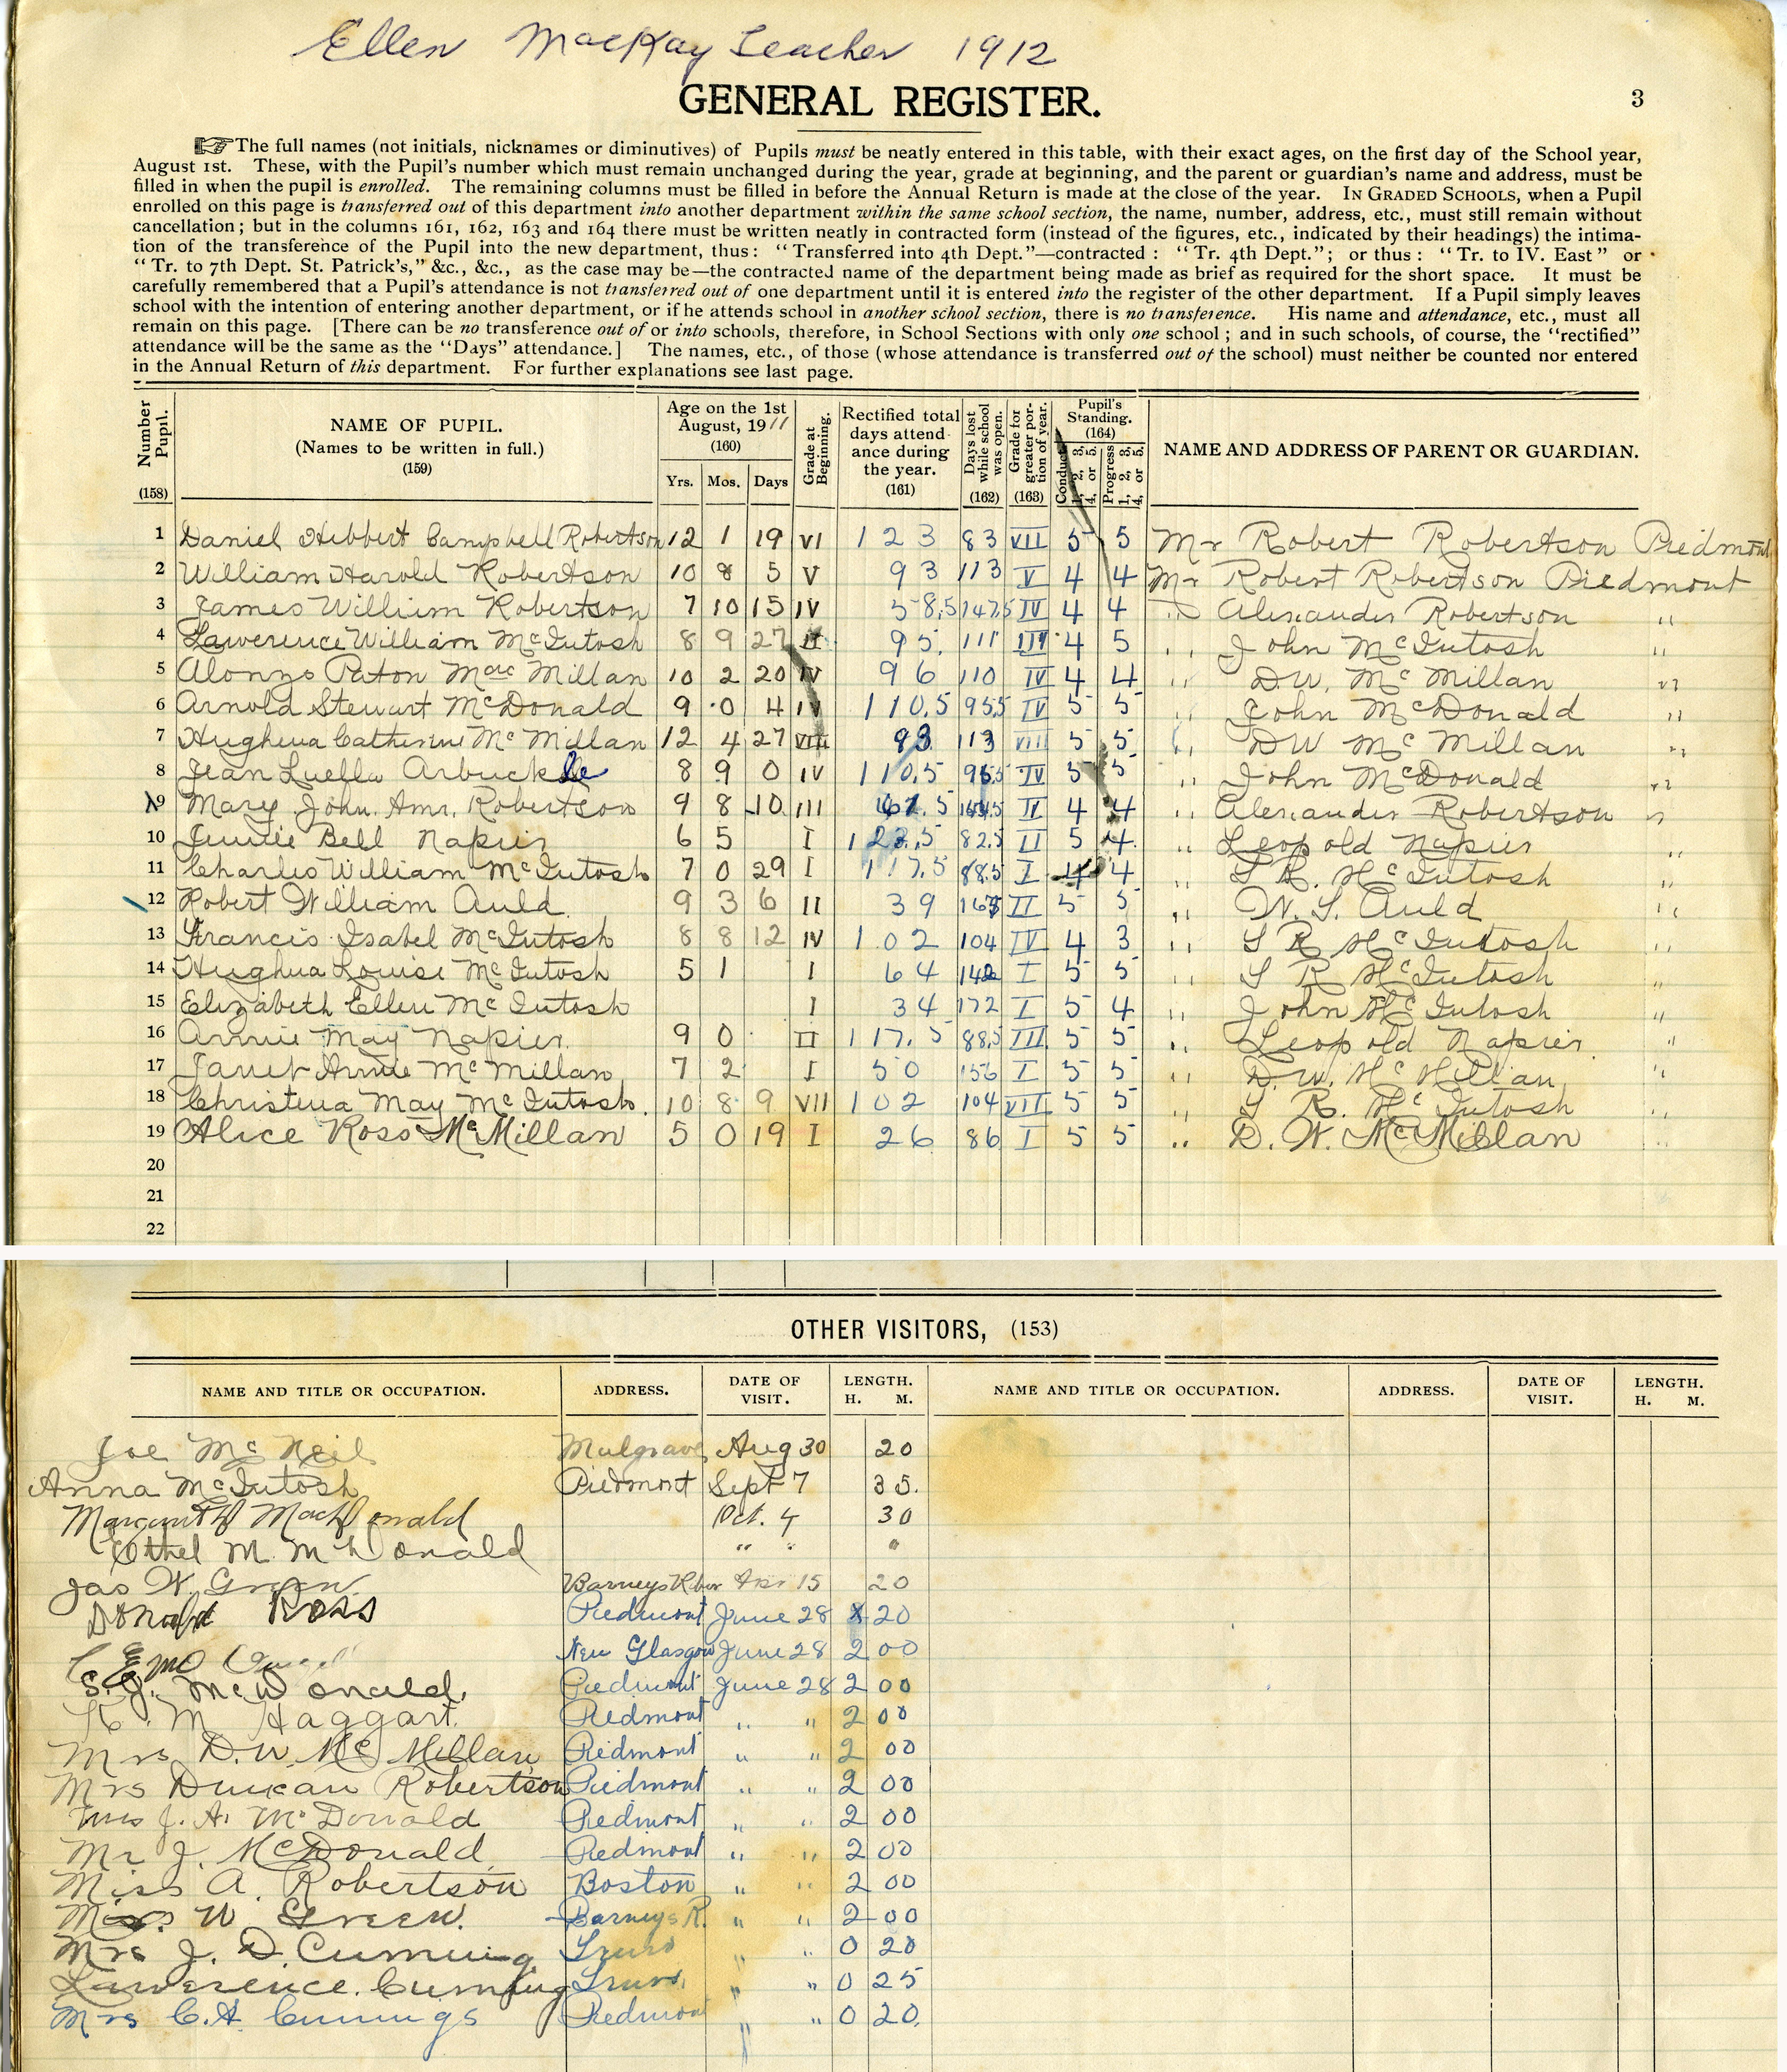 Ellen MacKay Teacher 1912
GENERAL REGISTER.
3
☞ The full names (not initials, nicknames or diminutives) of Pupils must be neatly entered in this table, with their exact ages, on the first day of the School year,
August 1st. These, with the Pupil's number which must remain unchanged during the year, grade at beginning, and the parent or guardian's name and address, must be
filled in when the pupil is enrolled. The remaining columns must be filled in before the Annual Return is made at the close of the year. IN GRADED SCHOOLS, when a Pupil
enrolled on this page is transferred out of this department into another department within the same school section, the name, number, address, etc., must still remain without
cancellation; but in the columns 161, 162, 163 and 164 there must be written neatly in contracted form (instead of the figures, etc., indicated by their headings) the intima-
tion of the transference of the Pupil into the new department, thus: "Transferred into 4th Dept."—contracted: "Tr. 4th Dept."; or thus: "Tr. to IV. East" or
"Tr. to 7th Dept. St. Patrick's," &c., &c., as the case may be—the contracted name of the department being made as brief as required for the short space. It must be
carefully remembered that a Pupil's attendance is not transferred out of one department until it is entered into the register of the other department. If a Pupil simply leaves
school with the intention of entering another department, or if he attends school in another school section, there is no transference. His name and attendance, etc., must all
remain on this page. [There can be no transference out of or into schools, therefore, in School Sections with only one school; and in such schools, of course, the "rectified"
attendance will be the same as the "Days" attendance.] The names, etc., of those (whose attendance is transferred out of the school) must neither be counted nor entered
in the Annual Return of this department. For further explanations see last page.
Number Pupil. (158)
NAME OF PUPIL. (Names to be written in full.) (159)
Age on the 1st August, 1911 (160) Yrs. Mos. Days
Grade at Beginning.
Rectified total days attendance during the year. (161)
Days lost while school was open. (162)
Grade for greater portion of year. (163)
Pupil's Standing. (164) Conduct 1, 2, 3, 4, or 5. Progress 1, 2, 3, 4, or 5.
NAME AND ADDRESS OF PARENT OR GUARDIAN.
1 Daniel Hibbert Campbell Robertson 12 1 19 VI 123 83 VII 5 5 Mr Robert Robertson Piedmont
2 William Harold Robertson 10 8 5 V 93 113 V 4 4 Mr Robert Robertson Piedmont
3 James William Robertson 7 10 15 IV 58.5 147.5 IV 4 4 " Alexander Robertson "
4 Lawerence William McIntosh 8 9 27 II 95. 111 III 4 5 " John McIntosh "
5 Alonzo Paton MacMillan 10 2 20 IV 96 110 IV 4 4 " D.W. McMillan "
6 Arnold Stewart McDonald 9 0 4 IV 110.5 95.5 IV 5 5 " John McDonald "
7 Hughena Catherine McMillan 12 4 27 VIII 93 113 VIII 5 5 " DW McMillan "
8 Jean Luella Arbuckle 8 9 0 IV 110.5 95.5 IV 5 5 " John McDonald "
9 Mary John. Robertson 9 8 10 III IV 4 4 " Alexander Robertson "
10 Jennie Bell Napier 6 5 I 123.5 82.5 II 5 4 " Leopold Napier "
11 Charles William McIntosh 7 0 29 I 117.5 88.5 I 4 4 " McIntosh "
12 Robert William Auld. 9 3 6 II 39 167 II 5 5 " Auld "
13 Francis Isabel McIntosh 8 8 12 IV 102 104 IV 4 3 " McIntosh "
14 Hughena Louise McIntosh 5 1 I 64 142 I 5 5 " McIntosh "
15 Elizabeth Ellen McIntosh I 34 172 I 5 4 " John McIntosh "
16 Annie May Napier. 9 0 II 117.5 88.5 III 5 5 " Leopold Napier. "
17 Janet Annie McMillan 7 2 I 50 156 I 5 5 " D.W. McMillan "
18 Christena May McIntosh. 10 8 9 VII 102 104 VII 5 5 " McIntosh "
19 Alice Ross McMillan 5 0 19 I 26 86 I 5 5 " D. W. McMillan "
20
21
22
OTHER VISITORS, (153)
NAME AND TITLE OR OCCUPATION. ADDRESS. DATE OF VISIT. LENGTH. H. M. NAME AND TITLE OR OCCUPATION. ADDRESS. DATE OF VISIT. LENGTH. H. M.
Joe McNeil Mulgrave Aug 30 20
Anna McIntosh Piedmont Sept 7 35.
MacDonald Oct. 4 30
Ethel M. McDonald " " "
Jas W. Green. Barneys River 15 20
Donald Ross Piedmont June 28 20
New Glasgow June 28 2 00
S. J. McDonald. Piedmont June 28 2 00
M Haggart. Piedmont " " 2 00
Mrs D.W. McMillan Piedmont " " 2 00
Mrs Duncan Robertson Piedmont " " 2 00
Mrs J. A. McDonald Piedmont " " 2 00
Mr J. McDonald Piedmont " " 2 00
Miss A. Robertson Boston " " 2 00
W Green. Barneys R. " " 2 00
Mrs J. D. Cumming Truro " " 0 20
Lawerence. Cumming Truro. " " 0 25
Mrs C.A Cummings Piedmont " 0 20.